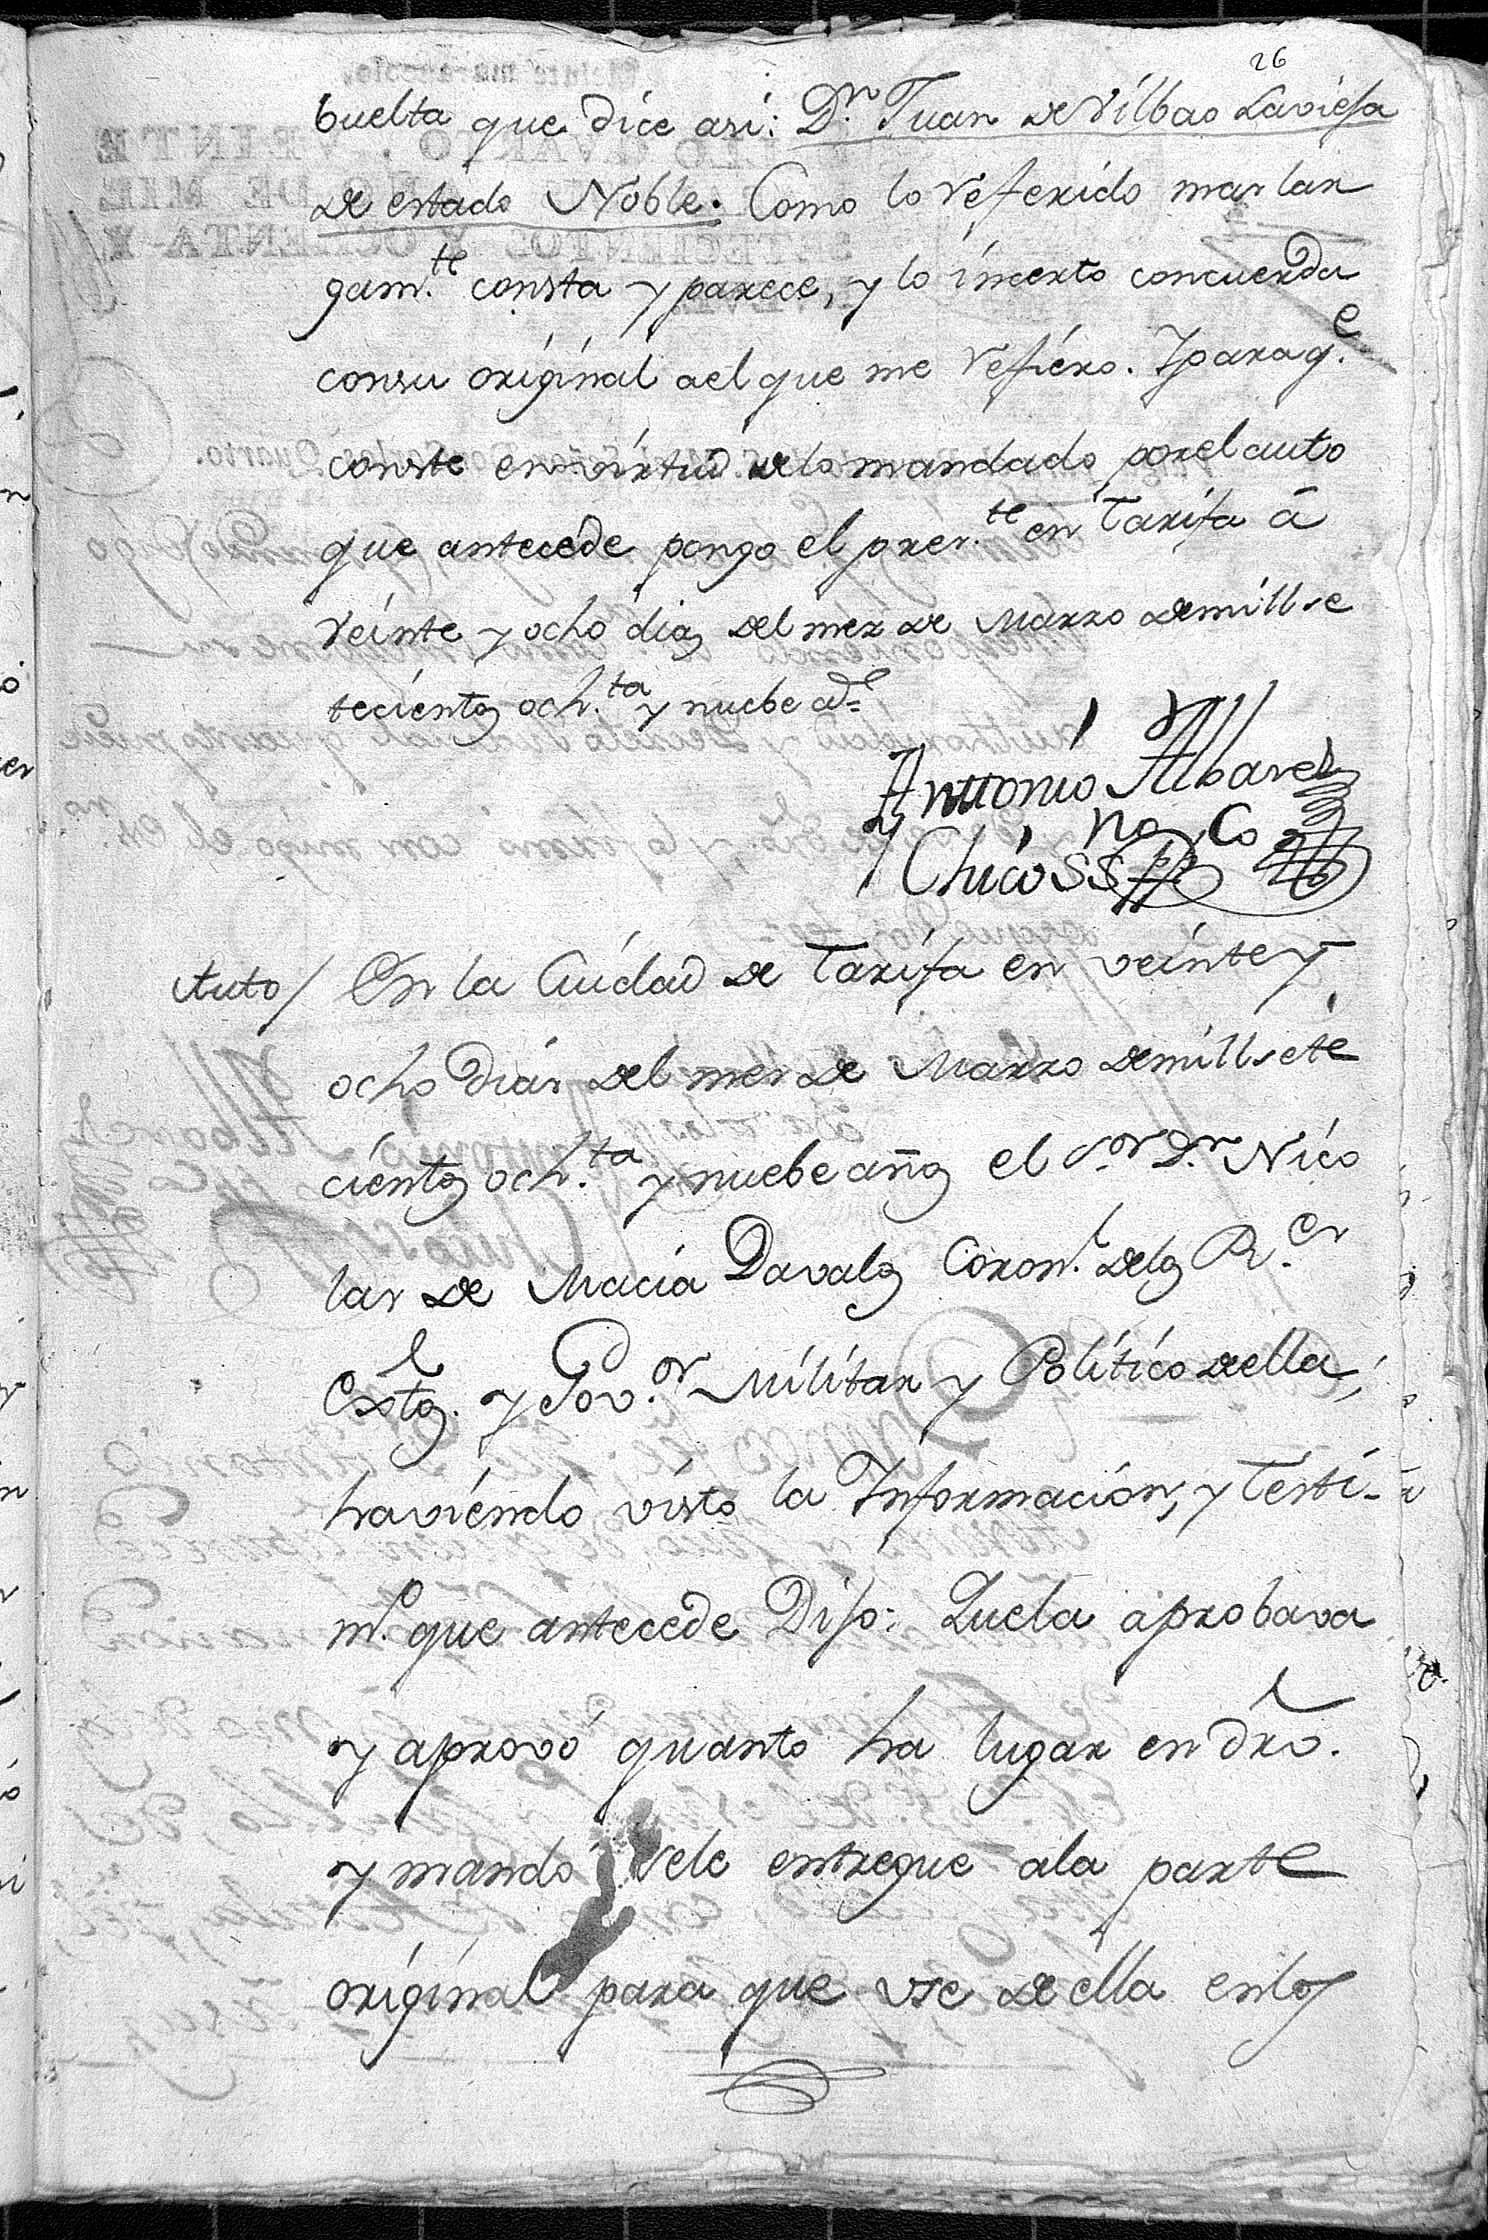 26
buelta que dice asi: Dn. Juan de Vilbao Laviesa
de estado Noble. Como lo referido mas lar
gamte. consta y parece, y lo incerto concuerda
consu original ael que me refiero. Y para qe.
conste en virtud de lo mandado por el auto
que antecede pongo el preste. en Tarifa á
veinte y ocho dias del mes de Marzo de mill se
tecientos ochta. y nuebe as=
Anttonio Albarez
y Chicoss
Auto / En la Ciudad de Tarifa en veinte y
ocho dias del mes de Marzo de mill sete
cientos ochta. y nuebe años el Sor. Dn. Nico
las de Macia Davalos Coronl. delos Rs.
Extos. y Gov.or Militar y Politico de ella,
haviendo visto la Informacion, y Testi-
mo. que antecede Dijo: Que la aprobava
y aprovó quanto ha lugar en dro.
y mando sele entregue ala parte
original para que use de ella enlos